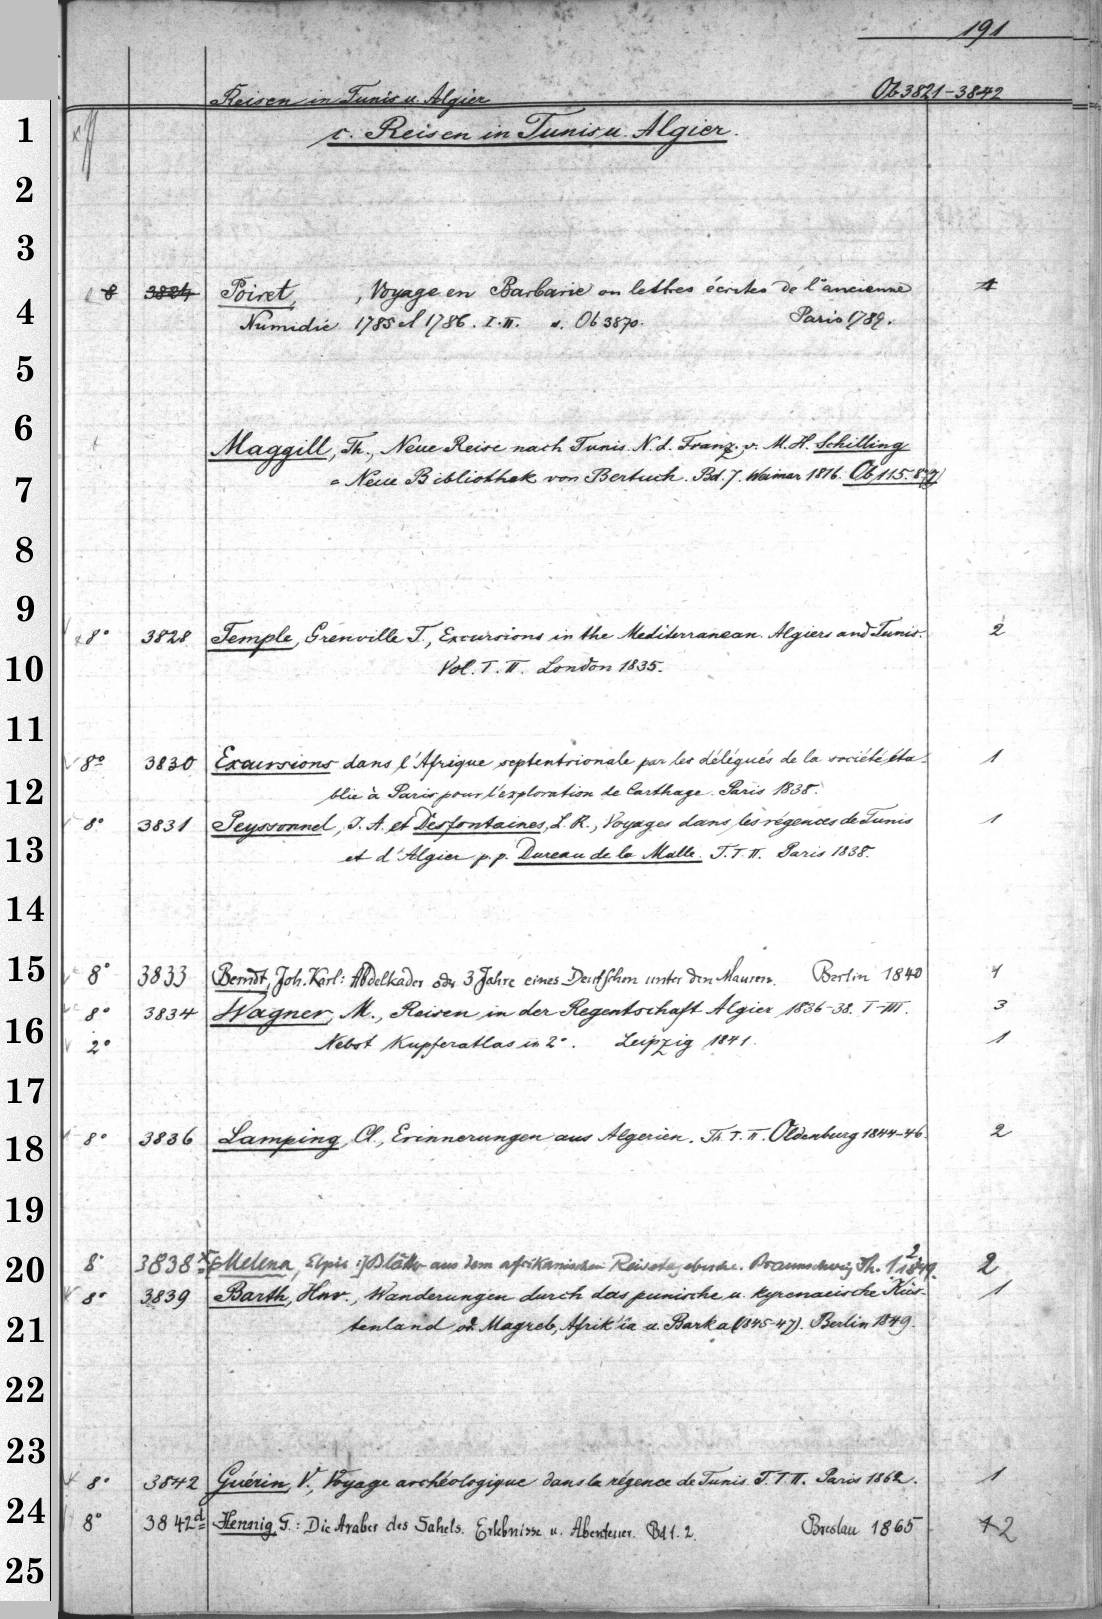 191
Reisen in Tunis u. Algier Ob 3821-3842
1
c. Reisen in Tunis u. Algier.
2
3
8 3824 Poiret, , Voyage en Barbarie ou lettres écrites de l'ancienne 1
4
Numidie 1785 et 1786. I. II. s. Ob 3870. Paris 1789.
5
6
Maggill, Th., Neue Reise nach Tunis. N. d. Franz. v. M. H. Schilling
= Neue Bibliothek von Bertuch. Bd. 7. Weimar 1816. Ob 115. 8°(7)
7
8
9
8° 3828 Temple, Grenville T., Excursions in the Mediterranean. Algiers and Tunis. 2
10
Vol. I. II. London 1835.
11
8° 3830 Excursions dans l'Afrique septentrionale par les délégués de la société éta- 1
12
blie à Paris pour l'exploration de Carthage. Paris 1838.
8° 3831 Peyssonnel, J. A. et Desfontaines, L. R., Voyages dans les régences de Tunis 1
13
et d'Alger p. p. Dureau de la Malle. T. I. II. Paris 1838.
14
15
8° 3833 Berndt, Joh. Karl: Abdelkader oder 3 Jahre eines Deutschen unter den Mauren. Berlin 1840 1
8° 3834 Wagner, M., Reisen in der Regentschaft Algier 1836-38. I-III. 3
16
2° Nebst Kupferatlas in 2°. Leipzig 1841. 1
17
8° 3836 Lamping, Cl., Erinnerungen aus Algerien. Th. I. II. Oldenburg 1844-46. 2
18
19
8° 3838 [Melena, Elpis:] Blätter aus dem afrikanischen Reisetagebuche. Braunschweig Th. 1.2 1849. 2
20
8° 3839 Barth, Hnr., Wanderungen durch das punische u. kyrenaeische Küs- 1
21
tenland od. Magreb, Afrik'ia u. Barka (1845-47). Berlin 1849.
22
23
8° 3842 Guérin, V., Voyage archéologique dans la régence de Tunis T. I. II. Paris 1862. 1
24
8° 3842d Hennig, G.: Die Araber des Sahels. Erlebnisse u. Abenteuer. Bd 1. 2. Breslau 1865 1 2
25